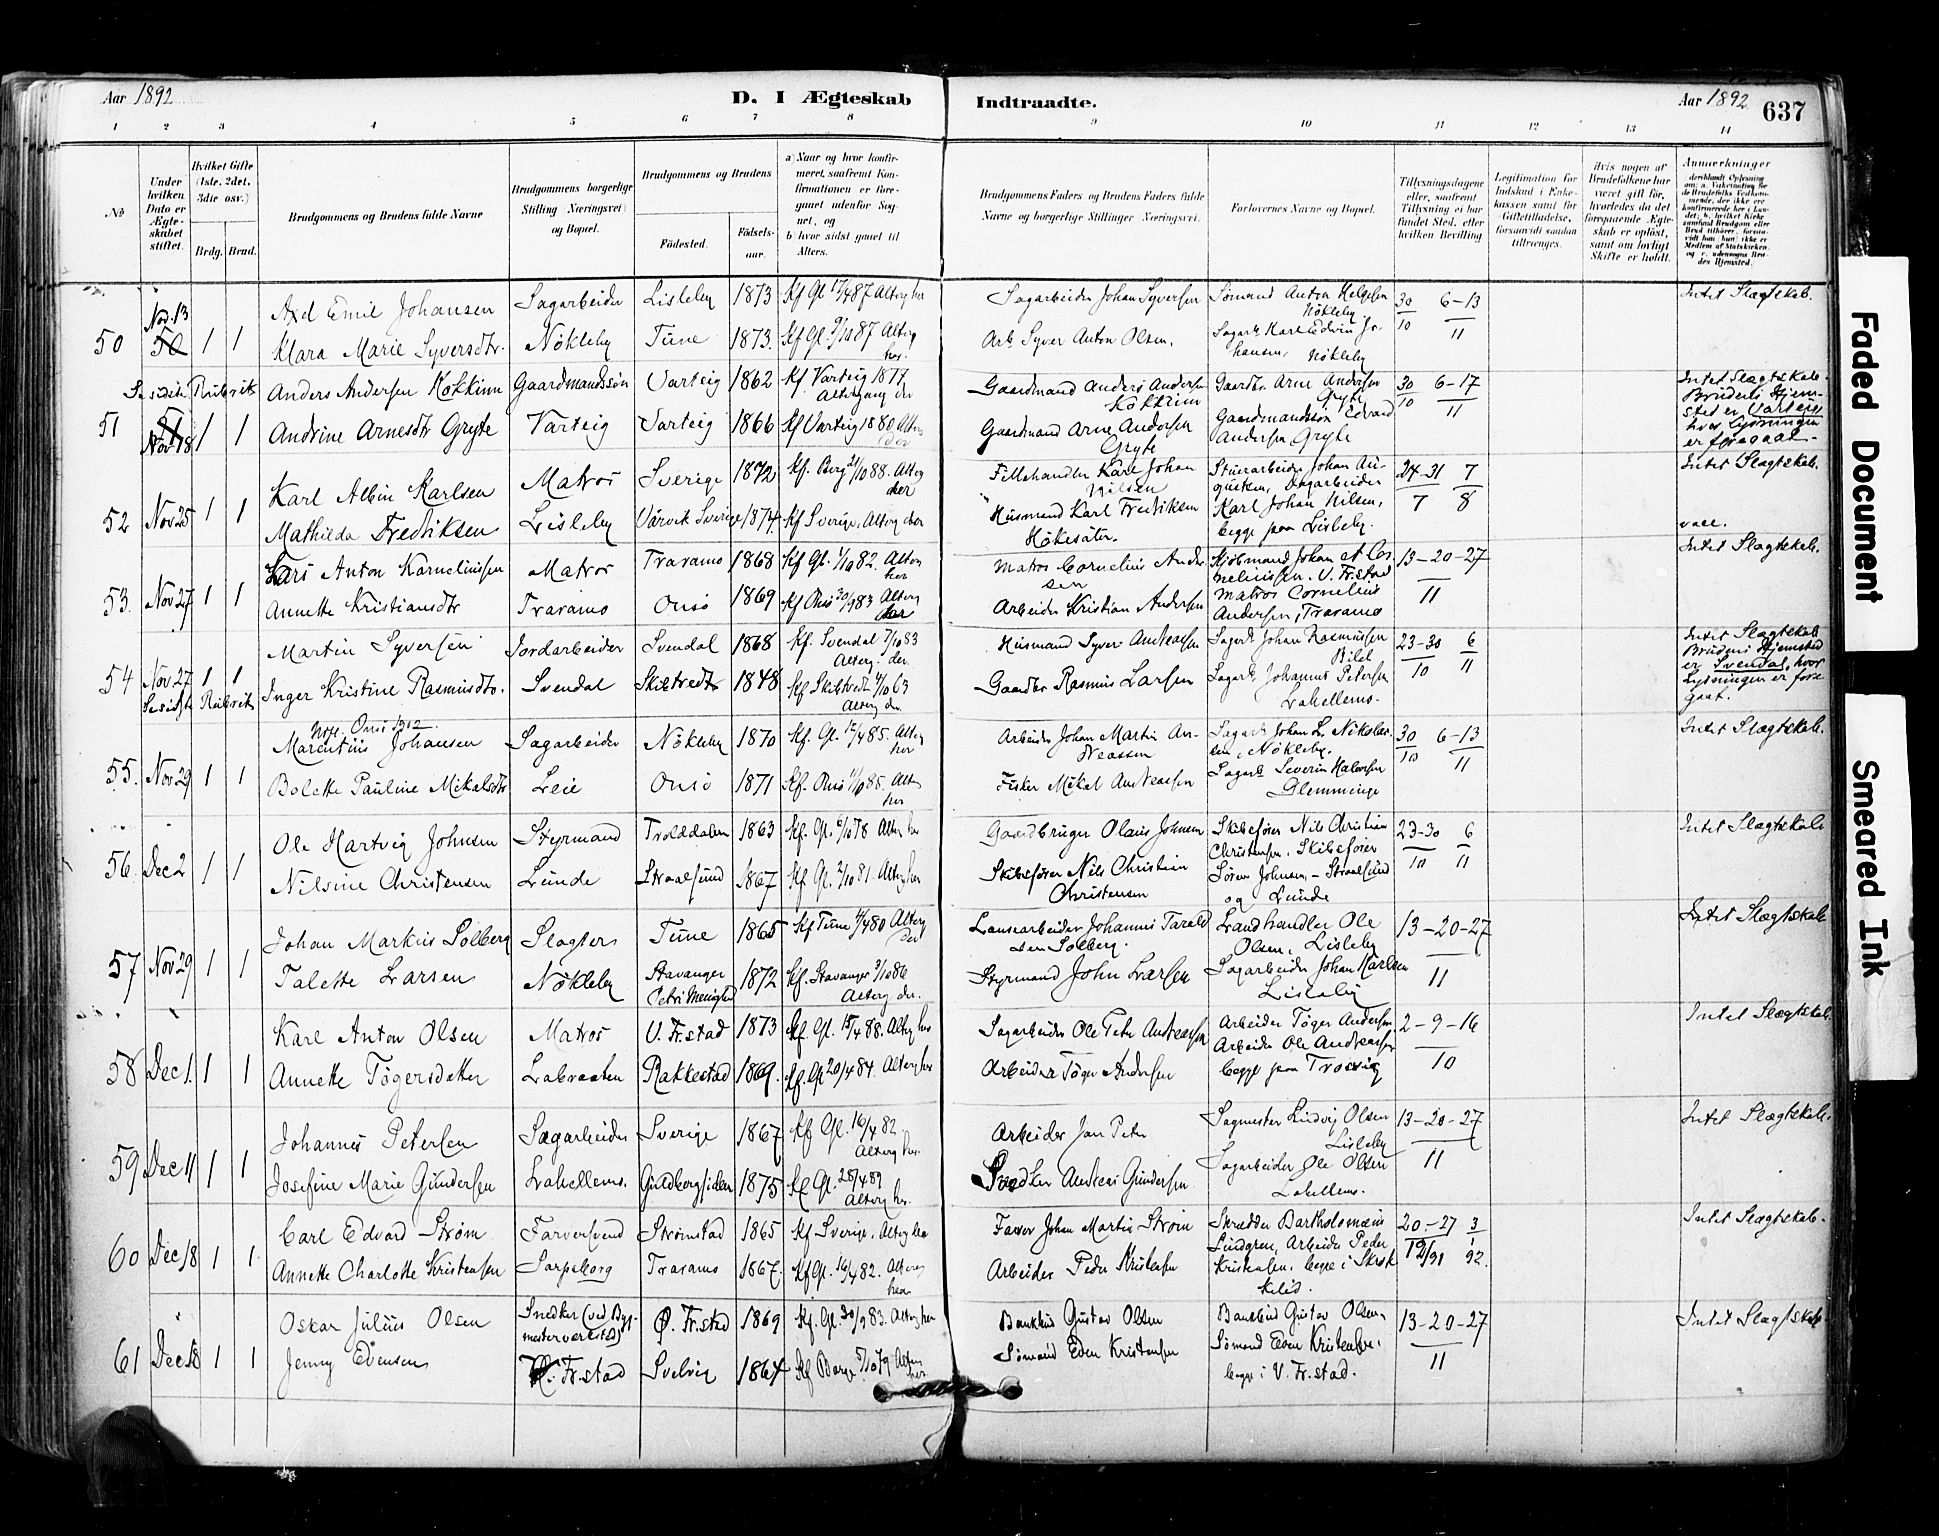 Aar 1892
D. I Ægteskab
Indtraadte.
Aar 1892
637
1 2 3 4 5 6 7 8 9 10 11 12 13 14
No
Under hvilken Dato er Ægteskabet stiftet.
Hvilket Gifte (1ste, 2det, 3die osv.)
Brdg. Brud.
Brudgommens og Brudens fulde Navne
Brudgommens borgerlige Stilling (Næringsvei) og Bopæl.
Brudgommens og Brudens
Födested.
Födsels-aar.
a) Naar og hvor konfirmeret, samt om Konfirmationen er foregaaet udenfor Sognet, og
b) hvor sidst gaaet til Alters.
Brudgommens Faders og Brudens Faders fulde Navne og borgerlige Stillinger (Næringsvei).
Forlovernes Navne og Bopæl.
Tillysningsdagene eller, saafremt Tillysning ei har fundet Sted, efter hvilken Bevilling
Legitimation for Indskud i Enkekassen samt for Giftetilladelse, forsaavidt saadan tiltrænges.
Hvis nogen af Brudefolkene har været gift før, hvorledes da det foregaaende Ægteskab er opløst, samt om lovligt Skifte er holdt.
Anmerkninger
50 Nov. 13 1 1
Axel Emil Johansen Sagarbeider Lisleby 1873 Kf Gl. 17/4 87 Alterg her
Klara Marie Syversdtr. Nökleby Tune 1873. Kf Gl. 9/10 87 Alterg her.
Sagarbeider Johan Syversen
Arb. Syver Anton Olsen.
Sömand Anton Helgesen Nökleby
Sagarb. Karl Edvin Johansen, Nökleby
30/10 6-13/11
Intet Slægtskab.
51 Nov 18 1 1
Se sidste Rubrik
Anders Andersen Kokkim Gaardmandssön Varteig 1862 Kf. Varteig 1877 Altergang der
Andrine Arnesdtr Gryte Varteig Varteig 1866 Kf Varteig 1880 Alterg der
Gaardmand Anders Andersen Kokkim
Gaardmand Arne Andersen Gryte
Gaardbr. Arne Andersen Gryte
Gaardmandssön Edvard Andersen Gryte
30/10 6-17/11
Intet Slægtskab.
Brudens Hjemsted er Varteig hvor Lysningen er foregaaet.
52 Nov 25 1 1
Karl Albin Karlsen Matros Sverige 1872 Kf. Berg 21/10 88. Alterg her
Mathilda Fredriksen Lisleby Värvik Sverige 1874 Kf Sverige. Alterg her
Fillehandler Karl Johan Nilsen
Husmand Karl Fredriksen Hökesäter.
Stuerarbeider Johan Augustsen, Dagarbeider
Karl Johan Nilsen, begge paa Lisleby.
24-31/7 7/8
Intet Slægtskab.
vacc.
53. Nov 27 1 1
Lars Anton Korneliussen Matros Traramo 1868 Kf Gl. 1/10 82. Alterg her
Annette Kristiansdtr Traramo Onsö 1869 Kf Onsö 30/9 83 Alterg her
Matros Cornelius Andersen
Arbeider Kristian Andersen
Kjöbmand Johan A. Corneliussen. V. Fr.stad
Matros Cornelius Andersen, Traramo
13-20-27/11
Intet Slægtskab.
54 Nov. 27 1 1
Se sidste Rubrik
Martin Syversen Jordarbeider Svendal 1868 Kf. Svendal 7/10 83 Alterg. der.
Inger Kristine Rasmusdtr. Svendal Skibtvedt 1848 Kf Skibtvedt 4/10 63 Alterg der.
Husmand Syver Andreassen
Gaardbr Rasmus Larsen
Sagarb. Johan Rasmussen Bilet
Sagarb. Johannes Petersen Labellems.
23-30/10 6/11
Intet Slægtskab
Brudens Hjemsted er Svendal, hvor Lysningen er foregaaet.
55. Nov. 29 1 1
Onsö 1902
Marentius Johansen Sagarbeider Nökleby 1870 Kf. Gl. 12/4 85. Alterg her
Bolette Pauline Mikalsdtr Leie Onsö 1871 Kf. Onsö 11/10 85. Alterg her
Arbeider Johan Martin Andreassen
Fisker Mikal Andreassen
Sagarb Johan L. Nikolaisen, Nökleby.
Sagarb Severin Halvorsen Glemminge
30/10 6-13/11
Intet Slægtskab.
56. Dec 2 1 1
Ole Hartvig Johnsen Styrmand Trolddalen 1863 Kf. Gl. 6/10 78 Alterg her
Nilsine Christensen Lunde Straalsund 1867 Kf. Gl. 2/10 81. Alterg her
Gaardbruger Olaus Johnsen
Skibsförer Nils Christian Christensen
Skibsförer Nils Christian Christensen, Skibsförer
Sören Johnsen, - Straalsund og Lunde
23-30/10 6/11
Intet Slægtskab
57 Nov 29 1 1
Johan Markus Solberg Slagter Tune 1865 Kf Tune 4/4 80 Alterg der
Talette Larsen Nökleby Stavanger Petri Menighed 1872 Kf. Stavanger 3/10 86 Alterg der.
Lansearbeider Johannes Taraldsen Solberg.
Styrmand John Larsen
Landhandler Ole Olsen, Lisleby
Sagarbeider Johan Karlsen Lisleby
13-20-27/11
Intet Slægtskab
58 Dec 1. 1 1
Karl Anton Olsen Matros V. Fr.stad 1873 Kf. Gl. 15/4 88. Alterg her
Annette Tögersdatter Labraaten Rakkestad 1869. Kf. Gl 20/4 84. Alterg her
Sagarbeider Ole Peter Andreassen
Arbeider Töger Andersen
Arbeider Töger Andersen,
Arbeider Ole Andreassen
begge paa Trosvig
2-9-16/10
Intet Slægtskab.
59 Dec 11 1 1
Johannes Petersen Sagarbeider Sverige 1867 Kf Gl. 16/4 82. Alterg her.
Josefine Marie Gundersen Labellems. Gudbergsiden 1875 Kf Gl. 28/4 89 Alterg her.
Arbeider Jan Peter
Snedker Andreas Gundersen
Sagmester Ludvig Olsen Lisleby
Sagarbeider Ole Olsen Labellems.
13-20-27/11
Intet Slægtskab.
60 Dec 18 1 1
Carl Edvard Ström Farversvend Strömstad 1865 Kf Sverige. Alterg her
Annette Charlotte Kristensen Sarpsborg Traramo 1867. Kf Gl. 16/4 82. Alterg her
Farver Johan Martin Ström
Arbeider Peder Kristensen
Skrædder Bartholomæus Lindgren, Arbeider Peder Kristensen, begge i
20.-27/12/91 3/1 92.
Intet Slægtskab.
61 Dec 18 1 1
Oskar Julius Olsen Snedker (ved Bygmesterverksted) Ø. Fr.stad 1869 Kf. Gl. 30/9 83. Alterg her
Jenny Evensen V. Fr.stad Svelvig 1864 Kf Borge 5/10 79 Alterg her
Bankbud Gustav Olsen
Sömand Even Kristensen
Bankbud Gustav Olsen,
Sömand Even Kristensen.
begge i V. Fr.stad.
13-20-27/11
Intet Slægtskab
Faded Document
Smeared Ink